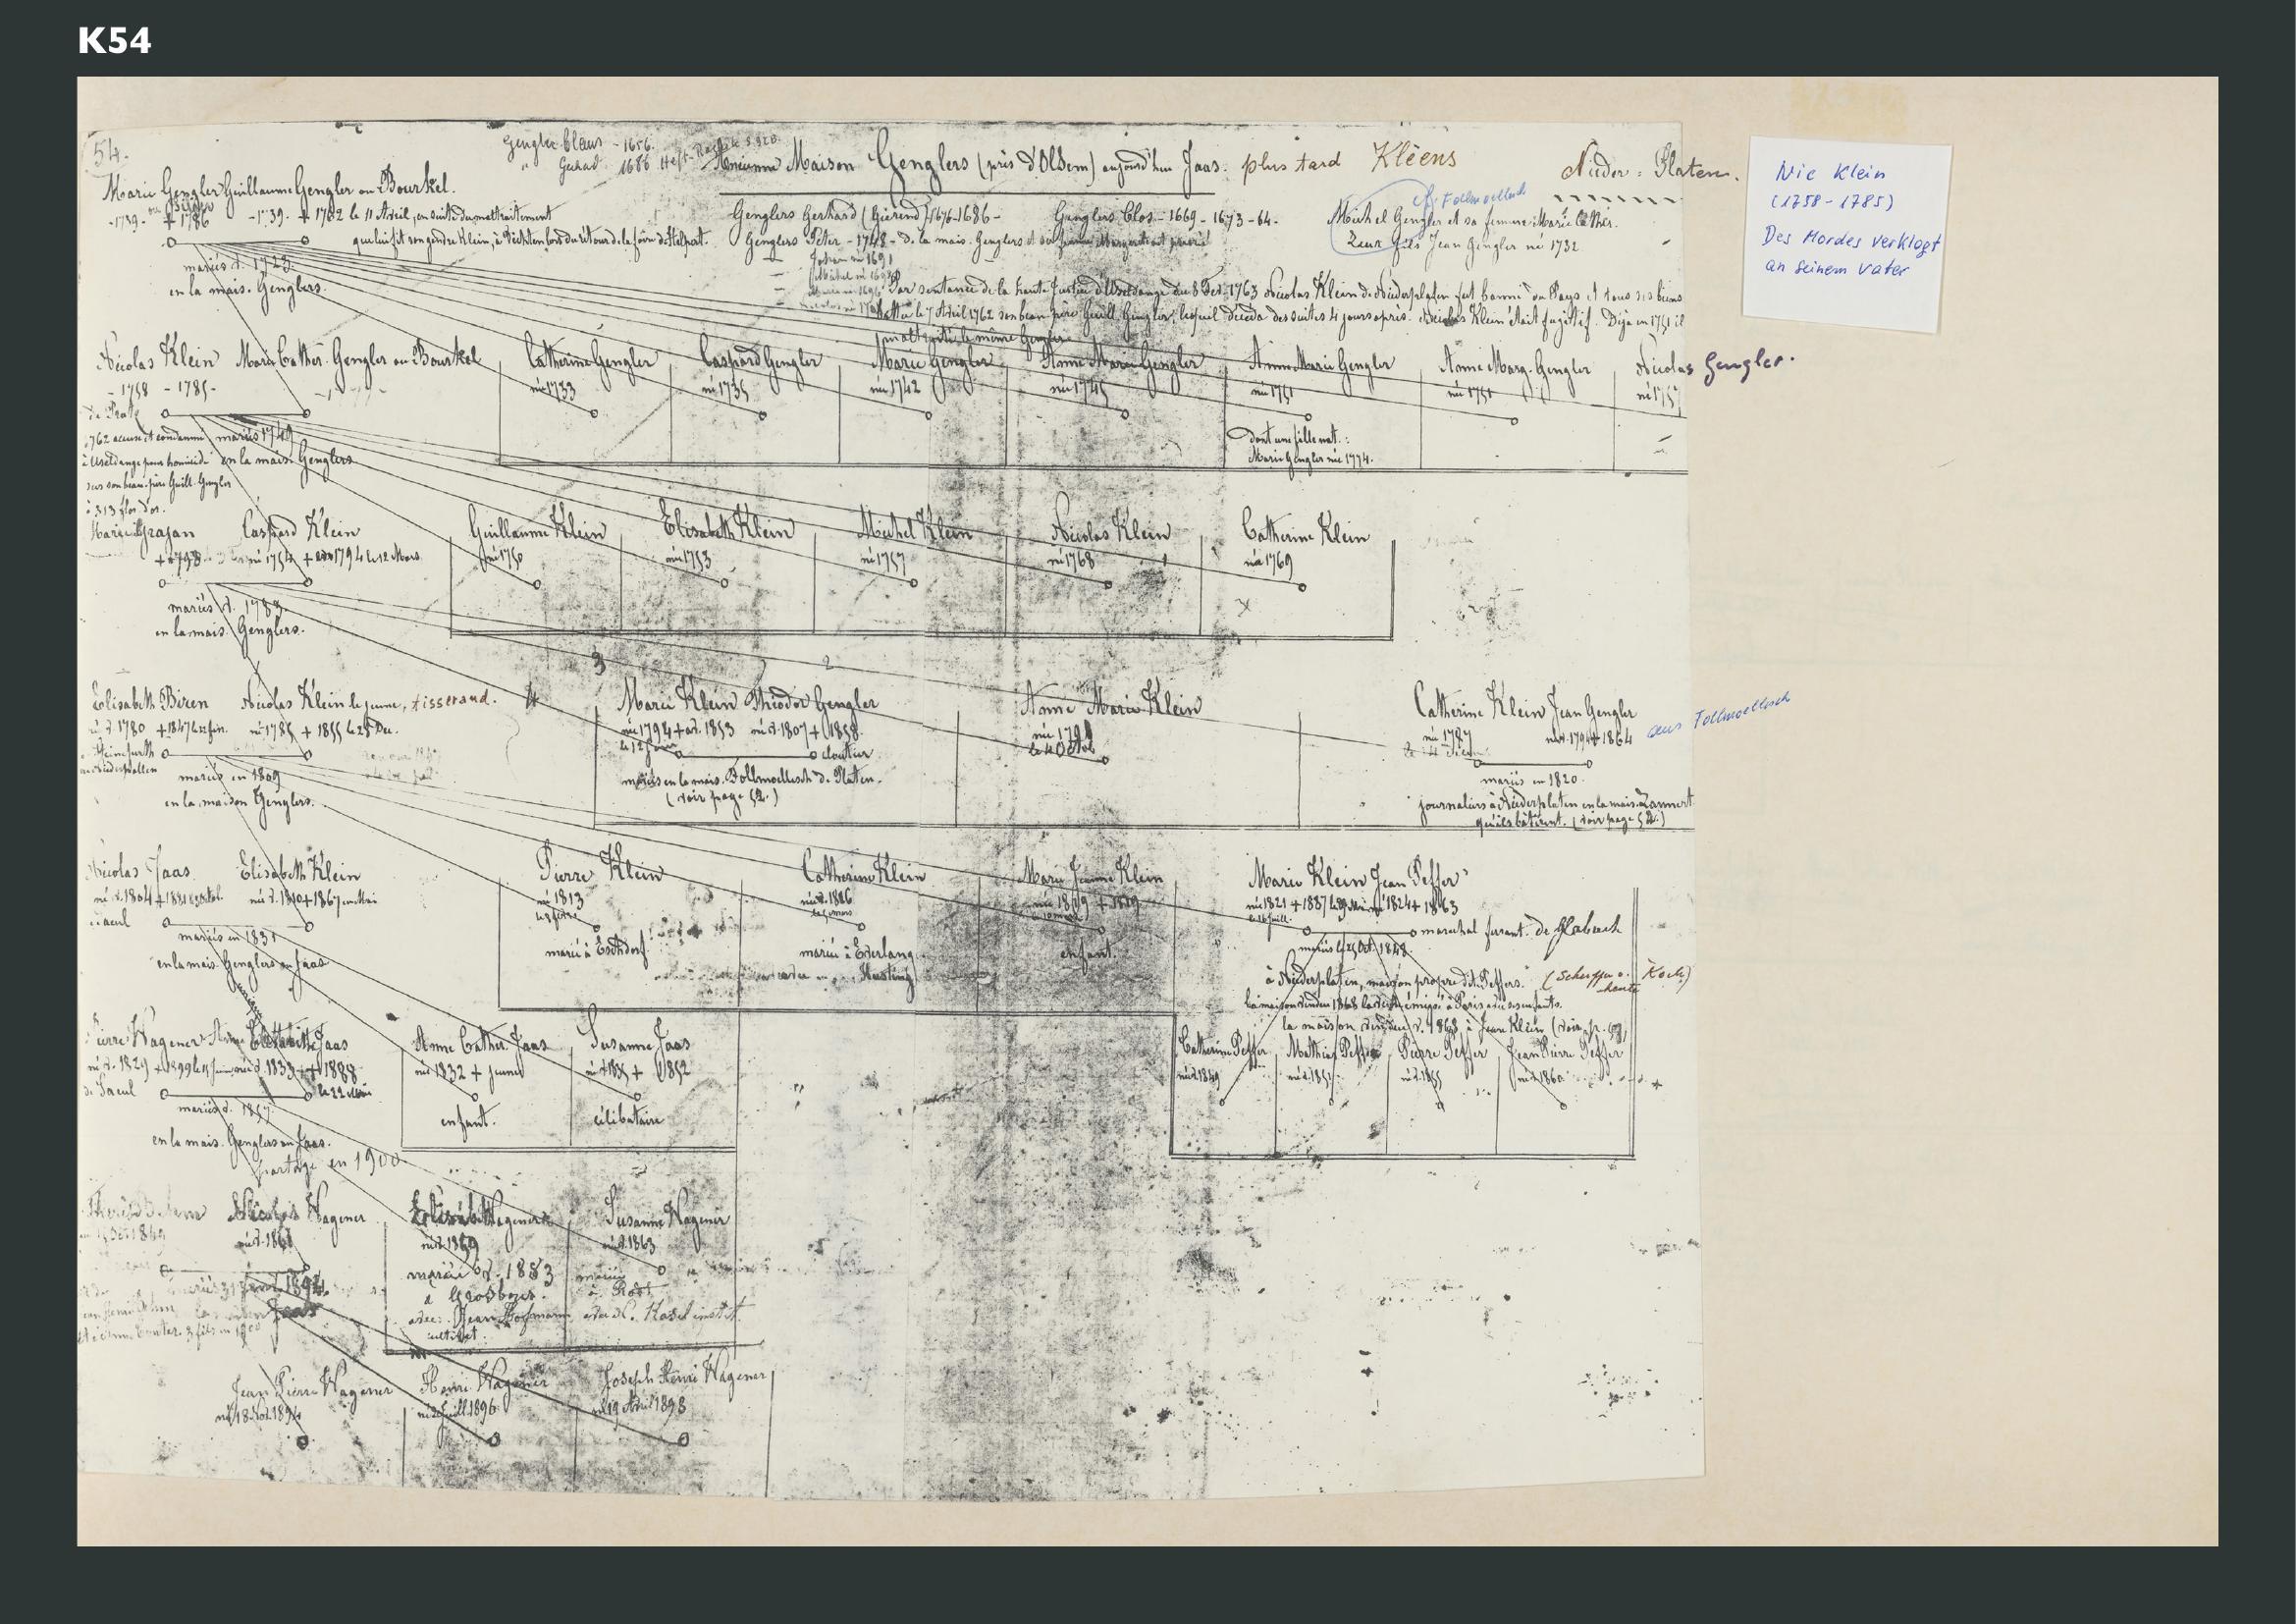 K54
54.
Gengler Claus - 1656.
" Gerad 1686
Ancienne Maison Genglers (près d'Olsem) aujourd'hui Jaas. plus tard Kléens
Nieder-Platen.
Nic Klein
(1758 - 1785)
Des Mordes verklagt
an seinem Vater
Marie Gengler Guillaume Gengler ou Bourkel.
-1739- + 1786 -1739- + 1762 le 11 Avril, ensuite du maltraitement
que lui fit son gendre Klein, à lors du retour de la foire de
mariés d. 1723
en la mais. Genglers.
Genglers Gerhard (Gierend) 1676-1686-
Genglers Clos - 1669 - 1673 - 64-
Genglers Peter - 1748 - de la mais. Genglers et
Johan né 1691
cf. Follmoellesch
Michel Gengler et sa femme Marie Cather.
Leur fils Jean Gengler né 1732
Par sentance de la haute Justice d'Useldange du 8 Fev. 1763 Nicolas Klein de Niederplaten fut banni du Pays et tous ses biens
le 7 Avril 1762 son beau-père Guill. Gengler, lequel décéda des suites 4 jours après. Nicolas Klein était fugitif. Déja en 1751 il
maltraité le même Gengler.
Nicolas Klein Marie Cather. Gengler ou Bourkel
- 1758 - 1785-
de Pratz
1762 accusé et condamné
à Useldange pour homicide
sur son beau-père Guill. Gengler
à 313 flor. d'or.
mariés 1749
en la mais. Genglers
Catherine Gengler
née 1733
Caspard Gengler
né 1735
Marie Gengler
née 1742
Anne Marie Gengler
née 1745
Anne Marie Gengler
née 1751
dont une fille nat.:
Marie Gengler née 1774.
Anne Marg. Gengler
née 1751
Nicolas Gengler.
né 1757
Marie Grajan Caspard Klein
+ 1798 né 1754 + 1794 le 12 Mars
mariés d. 1783
en la mais. Genglers.
Guillaume Klein
né 1750
Elisabeth Klein
née 1753
Michel Klein
né 1757
Nicolas Klein
né 1768
Catherine Klein
née 1769
3 2
4
Elisabeth Biren Nicolas Klein le jeune, tisserand.
né d. 1780 + 1847 le 12 Jin. né 1785 + 1855 le 28 Dec.
mariés en 1809
en la maison Genglers.
Marie Klein Théodor Gengler
née 1794 + d. 1853 né d. 1807 + 1858
cloutier
mariés en la mais. Follmoellesch d. Platen.
(voir page 52.)
Anne Marie Klein
née 1791
le 4 Octob
Catherine Klein Jean Gengler
née 1787 né d. 1794 + 1864
aus Follmoellesch
mariés en 1820
journaliers à Niederplaten en la mais. Lannert
qu'ils bâtirent. (voir page 52.)
Nicolas Jaas Elisabeth Klein
né d. 1804 + 1881 né d. 1810 + 1867 en Mai
mariés en 1831
en la mais. Genglers ou Jaas
Pierre Klein
né 1813
marié à Eschdorf
Catherine Klein
née d. 1816
mariée à Everlang
Marie Jeanne Klein
née 1819 + 1819
enfant.
Marie Klein Jean Peffer
née 1821 + 1887 né 1824 + 1863
maréchal ferrant. de Glabach
mariés le 25 Oct. 1848
à Niederplaten, maison propre dite Peffers.
(Scheffer o. Koch)
heute
La maison vendu 1868 la veuve émigré à Paris avec ses enfants.
la maison vendue d. 1868 à Jean Klein (voir p. 69)
Catherine Peffer
née d. 1849
Mathias Peffer
né d. 1851
Pierre Peffer
né d. 1855
Jean Pierre Peffer
né d. 1860
Pierre Wagener Anne Elisabeth Jaas
né d. 1829 + 1899 née d. 1833 + 1888
de Saeul le 22 Mai
mariés d. 1857
en la mais. Genglers ou Jaas.
partage en 1900
Anne Cather. Jaas
née 1832 + jeune
enfant.
Susanne Jaas
née d. 1835 + 1852
célibataire
Nicolas Wagener
né d. 1861
mariés 31 1894
Elisabeth Wagener
née d. 1859
mariée d. 1883
à Grosbous.
avec. Jean Hofmann
cultivat.
Susanne Wagener
née d. 1863
mariée
à Rodt
avec N. Kasel instit.
Jean Pierre Wagener
né 18 Nov. 1894
Henri Wagener
né 2 Juill. 1896
Joseph Henri Wagener
né 19 Avril 1898